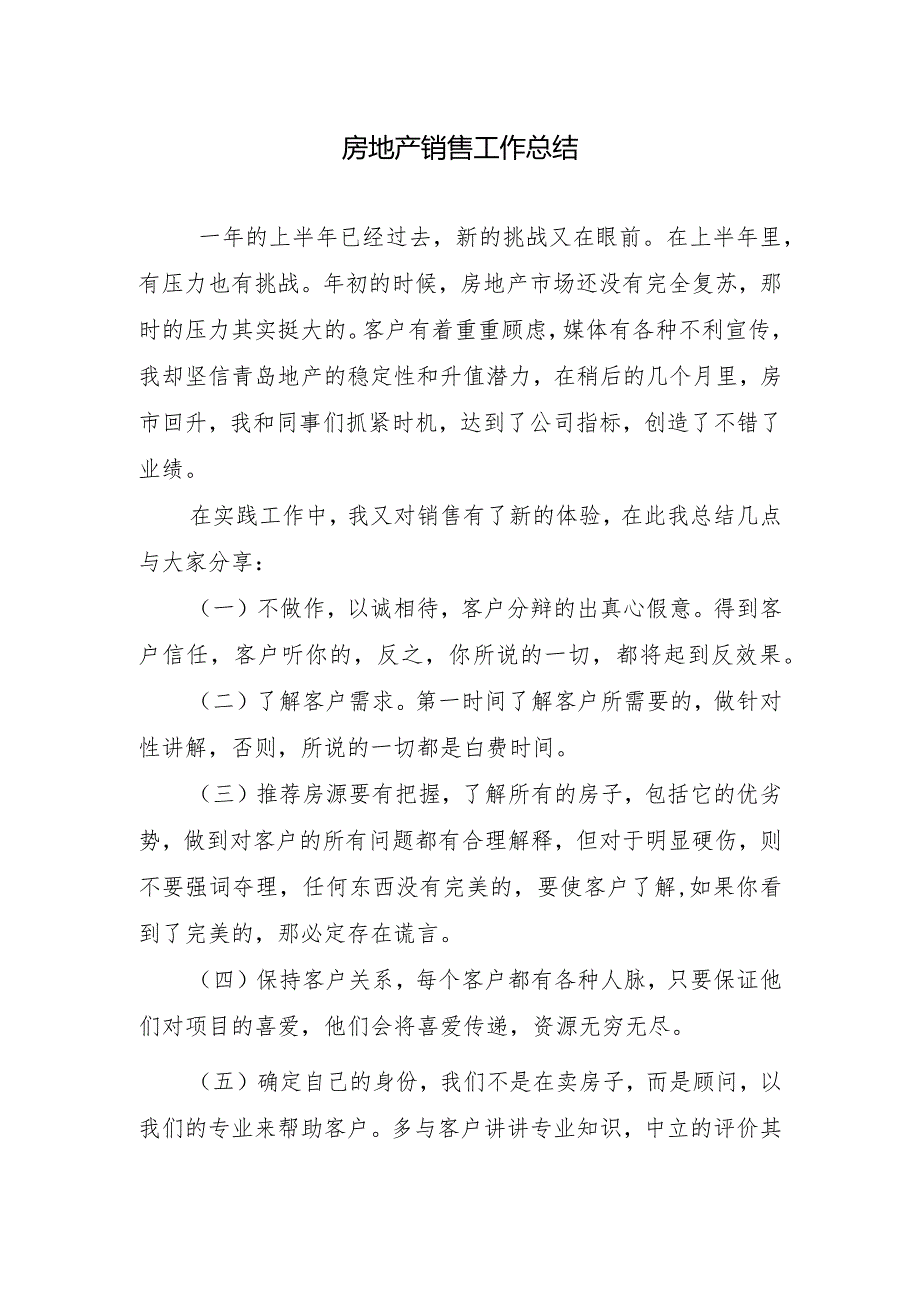 房地产销售工作总结
一年的上半年已经过去，新的挑战又在眼前。在上半年里，
有压力也有挑战。年初的时候，房地产市场还没有完全复苏，那
时的压力其实挺大的。客户有着重重顾虑，媒体有各种不利宣传，
我却坚信青岛地产的稳定性和升值潜力，在稍后的几个月里，房
市回升，我和同事们抓紧时机，达到了公司指标，创造了不错了
业绩。
在实践工作中，我又对销售有了新的体验，在此我总结几点
与大家分享：
（一）不做作，以诚相待，客户分辩的出真心假意。得到客
户信任，客户听你的，反之，你所说的一切，都将起到反效果。
（二）了解客户需求。第一时间了解客户所需要的，做针对
性讲解，否则，所说的一切都是白费时间。
（三）推荐房源要有把握，了解所有的房子，包括它的优劣
势，做到对客户的所有问题都有合理解释，但对于明显硬伤，则
不要强词夺理，任何东西没有完美的，要使客户了解,如果你看
到了完美的，那必定存在谎言。
（四）保持客户关系，每个客户都有各种人脉，只要保证他
们对项目的喜爱，他们会将喜爱传递，资源无穷无尽。
（五）确定自己的身份，我们不是在卖房子，而是顾问，以
我们的专业来帮助客户。多与客户讲讲专业知识，中立的评价其